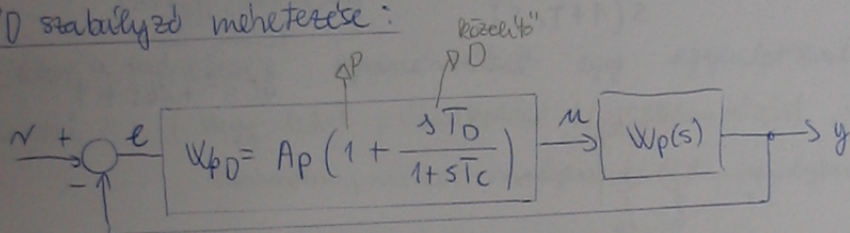 D szabályzó méretezése:
"közelítő"
P D
r + e W_PD = A_P (1 + sT_D / (1+sT_C)) u W_P(s) y
-